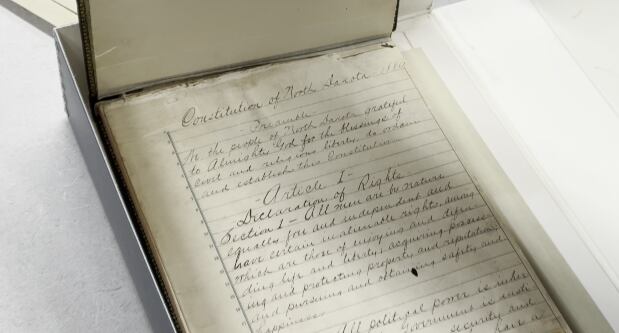 Constitution of North Dakota 1889
Preamble
We the people of North Dakota grateful
to Almighty God for the blessings of
civil and religious liberty, do ordain
and establish this Constitution.
- Article I -
Declaration of Rights
Section 1 - All men are by nature
equally free and independent and
have certain inalienable rights, among
which are those of enjoying and defen
ding life and liberty, acquiring possess
ing and protecting property and reputation,
and pursuing and obtaining safety and
happiness.
All political power is inher
Government is insti
security and
have a